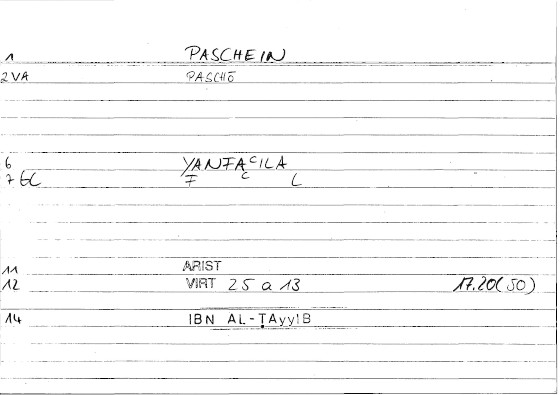 1 PASCHEIN
2VA PASCHŌ
6 YANFAᶜILA
7 GC F ᶜ L
11 ARIST
12 VIRT 25 a 13 17.20(50)
14 IBN AL-ṬAyyIB